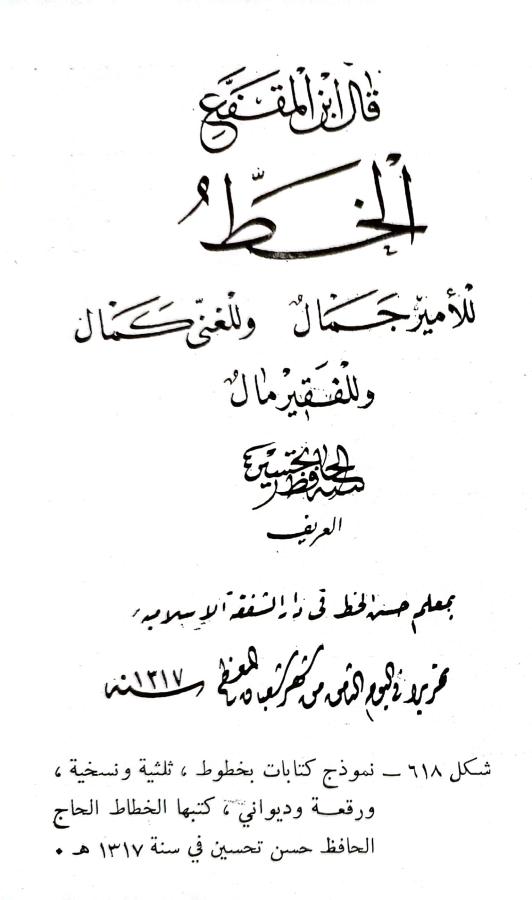 قال ابن المقفع
الخطّ
للأمير جمالٌ وللغنيّ كمال
وللفقير مالٌ
كتبه الحافظ تحسين
العريف
بمعلم حسن الخط في دار الشفقة الإسلاميه
تحريرا في اليوم الثامن من شهر شعبان المعظم سنه ١٣١٧
شكل ٦١٨ ــ نموذج كتابات بخطوط ، ثلثية ونسخية ،
ورقعة وديواني ، كتبها الخطاط الحاج
الحافظ حسن تحسين في سنة ١٣١٧ هـ ٠